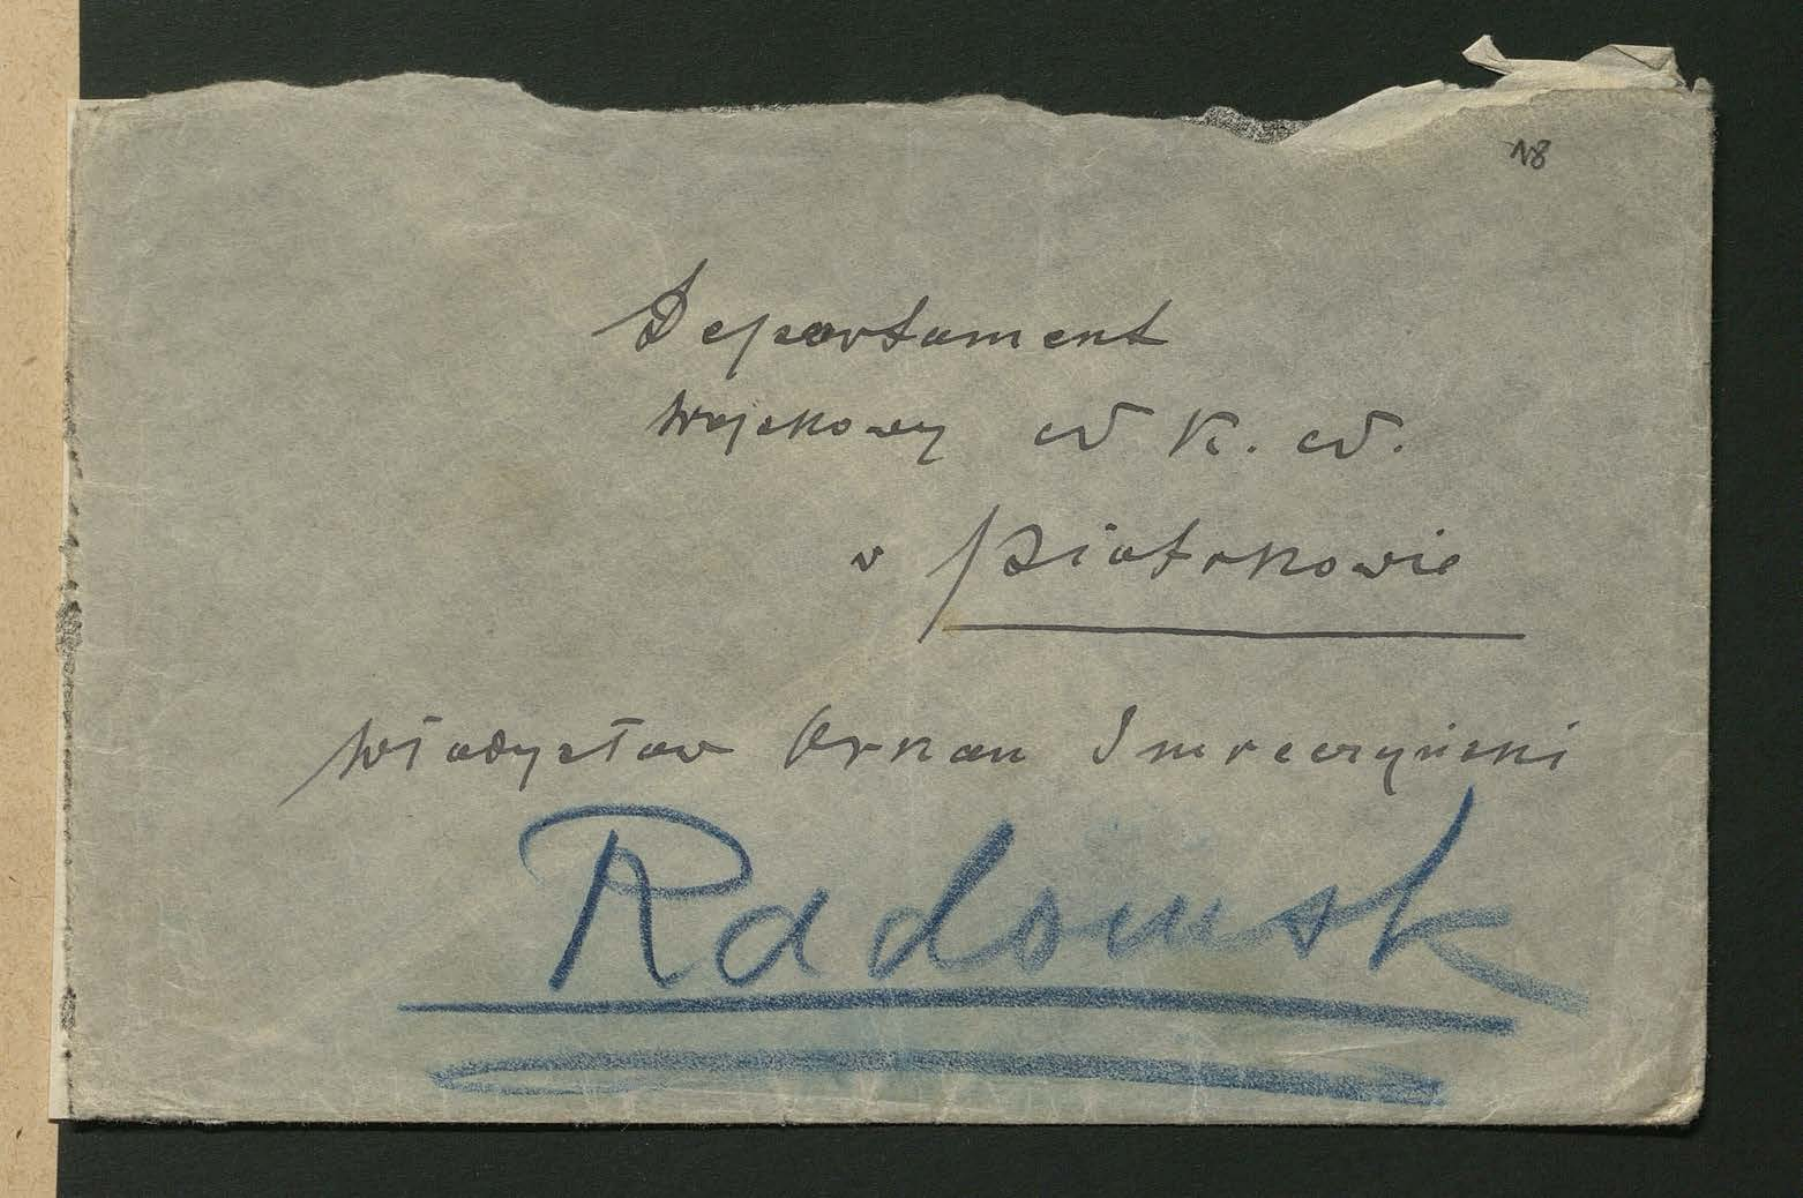 N8
Departament
Wojskowy N K. N.
w Piotrkowie
Władysław Orkan Smreczyński
Radomsk